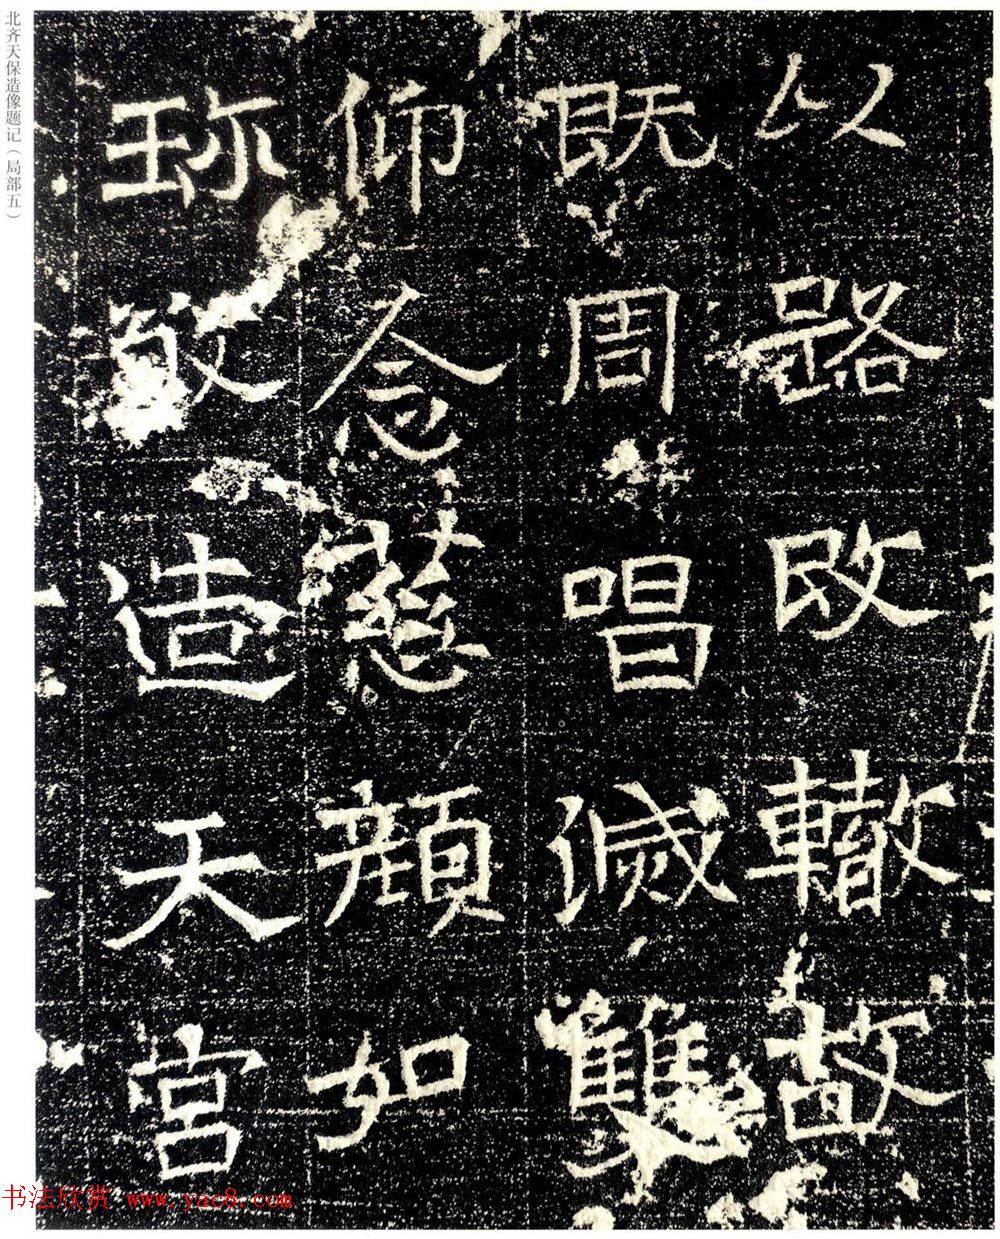 北齐天保造像题记（局部五）
以路改轍故
既周唱滅雙
仰念慈顔如
珎敬造天宮
书法欣赏 www.yac8.com